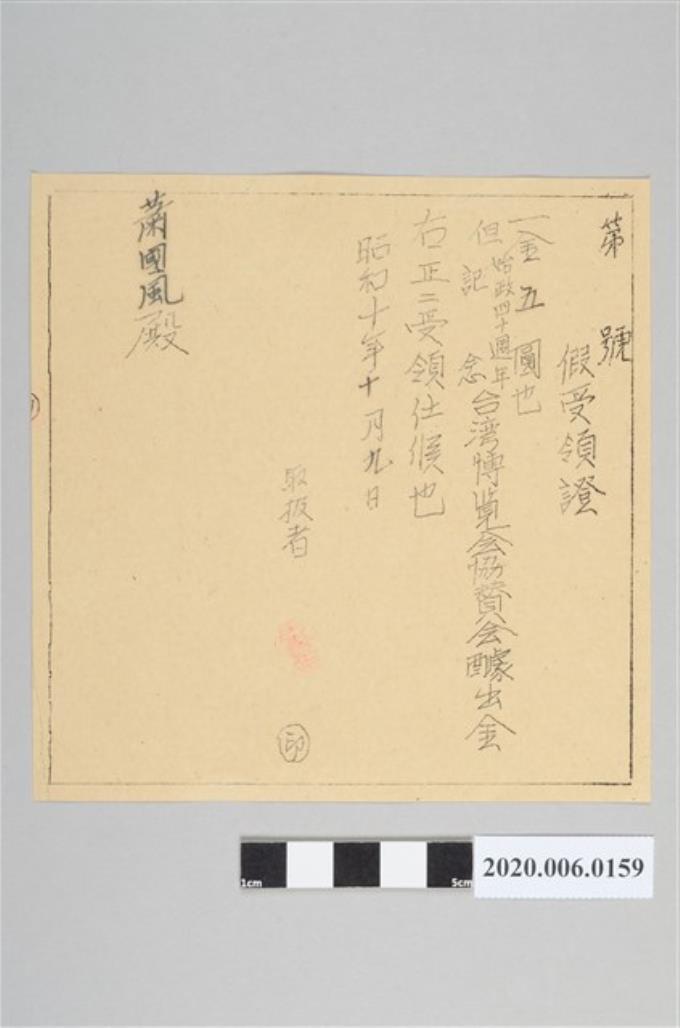 第 號
假受領證
一金五圓也
但始政四十週年記念台湾博覧会協賛会醵出金
右正ニ受領仕候也
昭和十年十月九日
取扱者
印
蕭國風殿
1cm
5cm
2020.006.0159